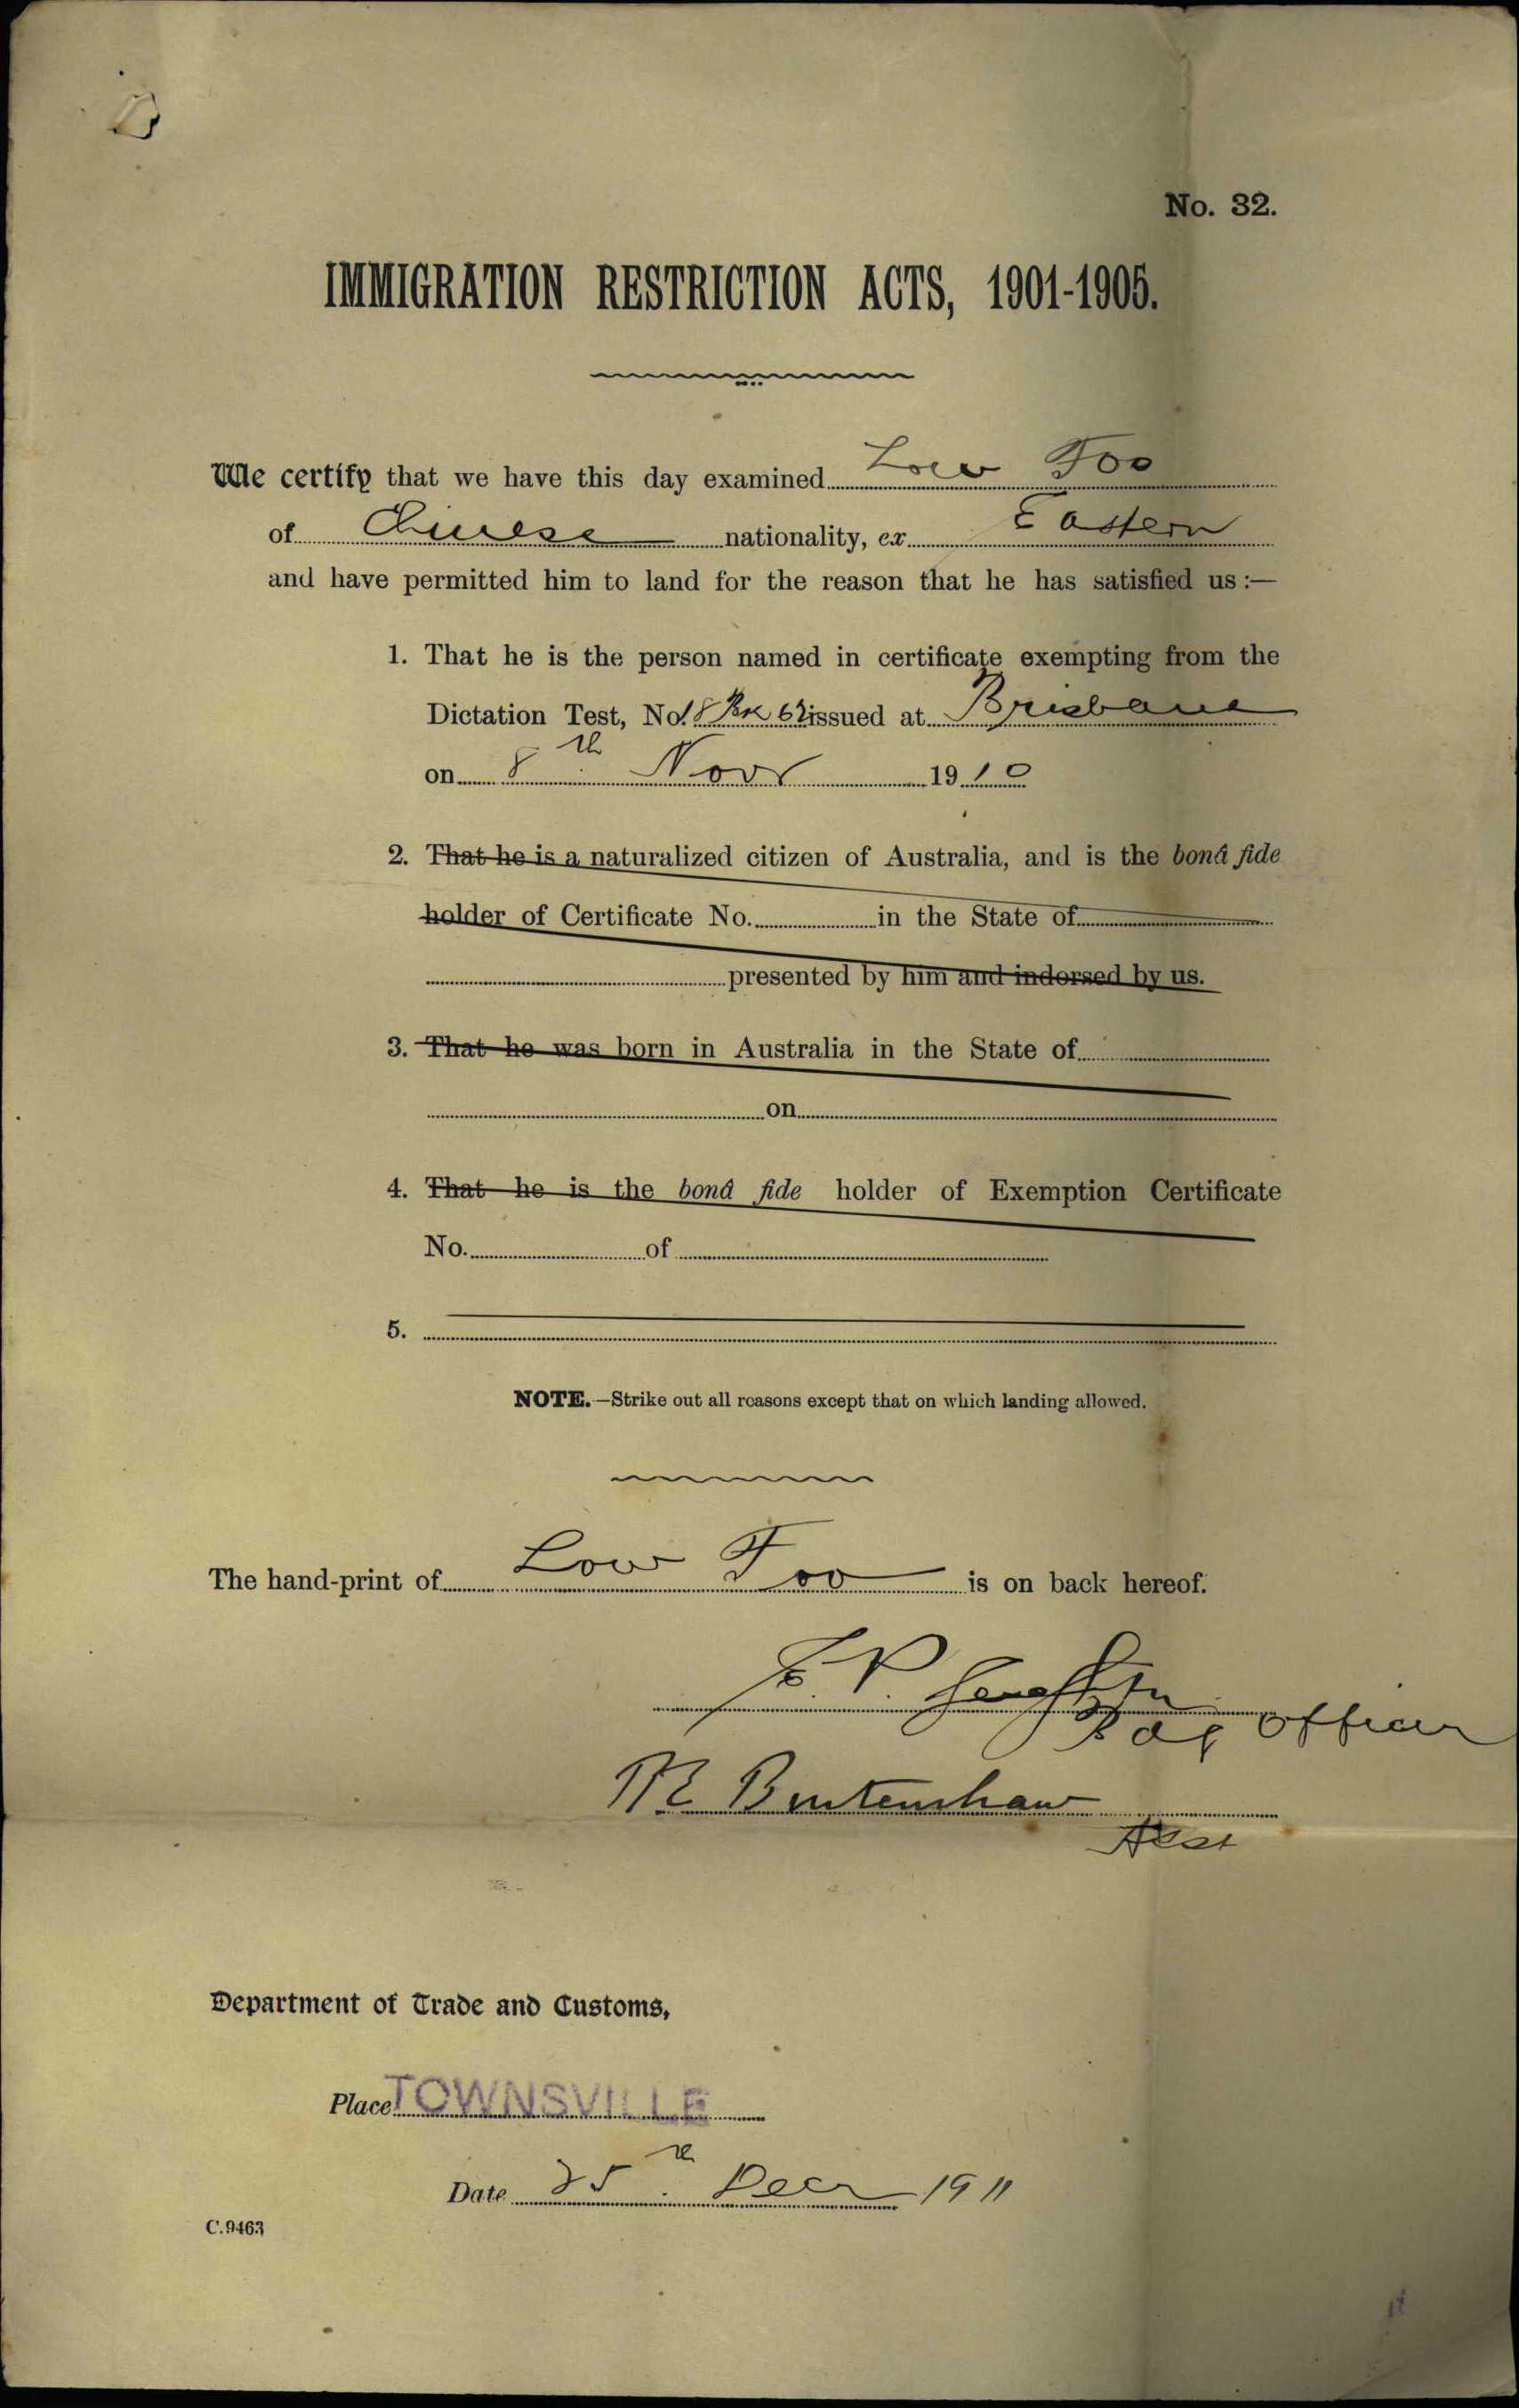 No. 32.
IMMIGRATION RESTRICTION ACTS, 1901-1905.
We certify that we have this day examined Low Foo
of Chinese nationality, ex Eastern
and have permitted him to land for the reason that he has satisfied us :—
1. That he is the person named in certificate exempting from the
Dictation Test, No. 18 Bk 62 issued at Brisbane
on 8th Novr 1910
2. That he is a naturalized citizen of Australia, and is the bonâ fide
holder of Certificate No. in the State of
presented by him and indorsed by us.
3. That he was born in Australia in the State of
on
4. That he is the bonâ fide holder of Exemption Certificate
No. of
5.
NOTE.—Strike out all reasons except that on which landing allowed.
The hand-print of Low Foo is on back hereof.
Officer
Department of Trade and Customs,
Place TOWNSVILLE
Date 25th Decr 1911
C.9463